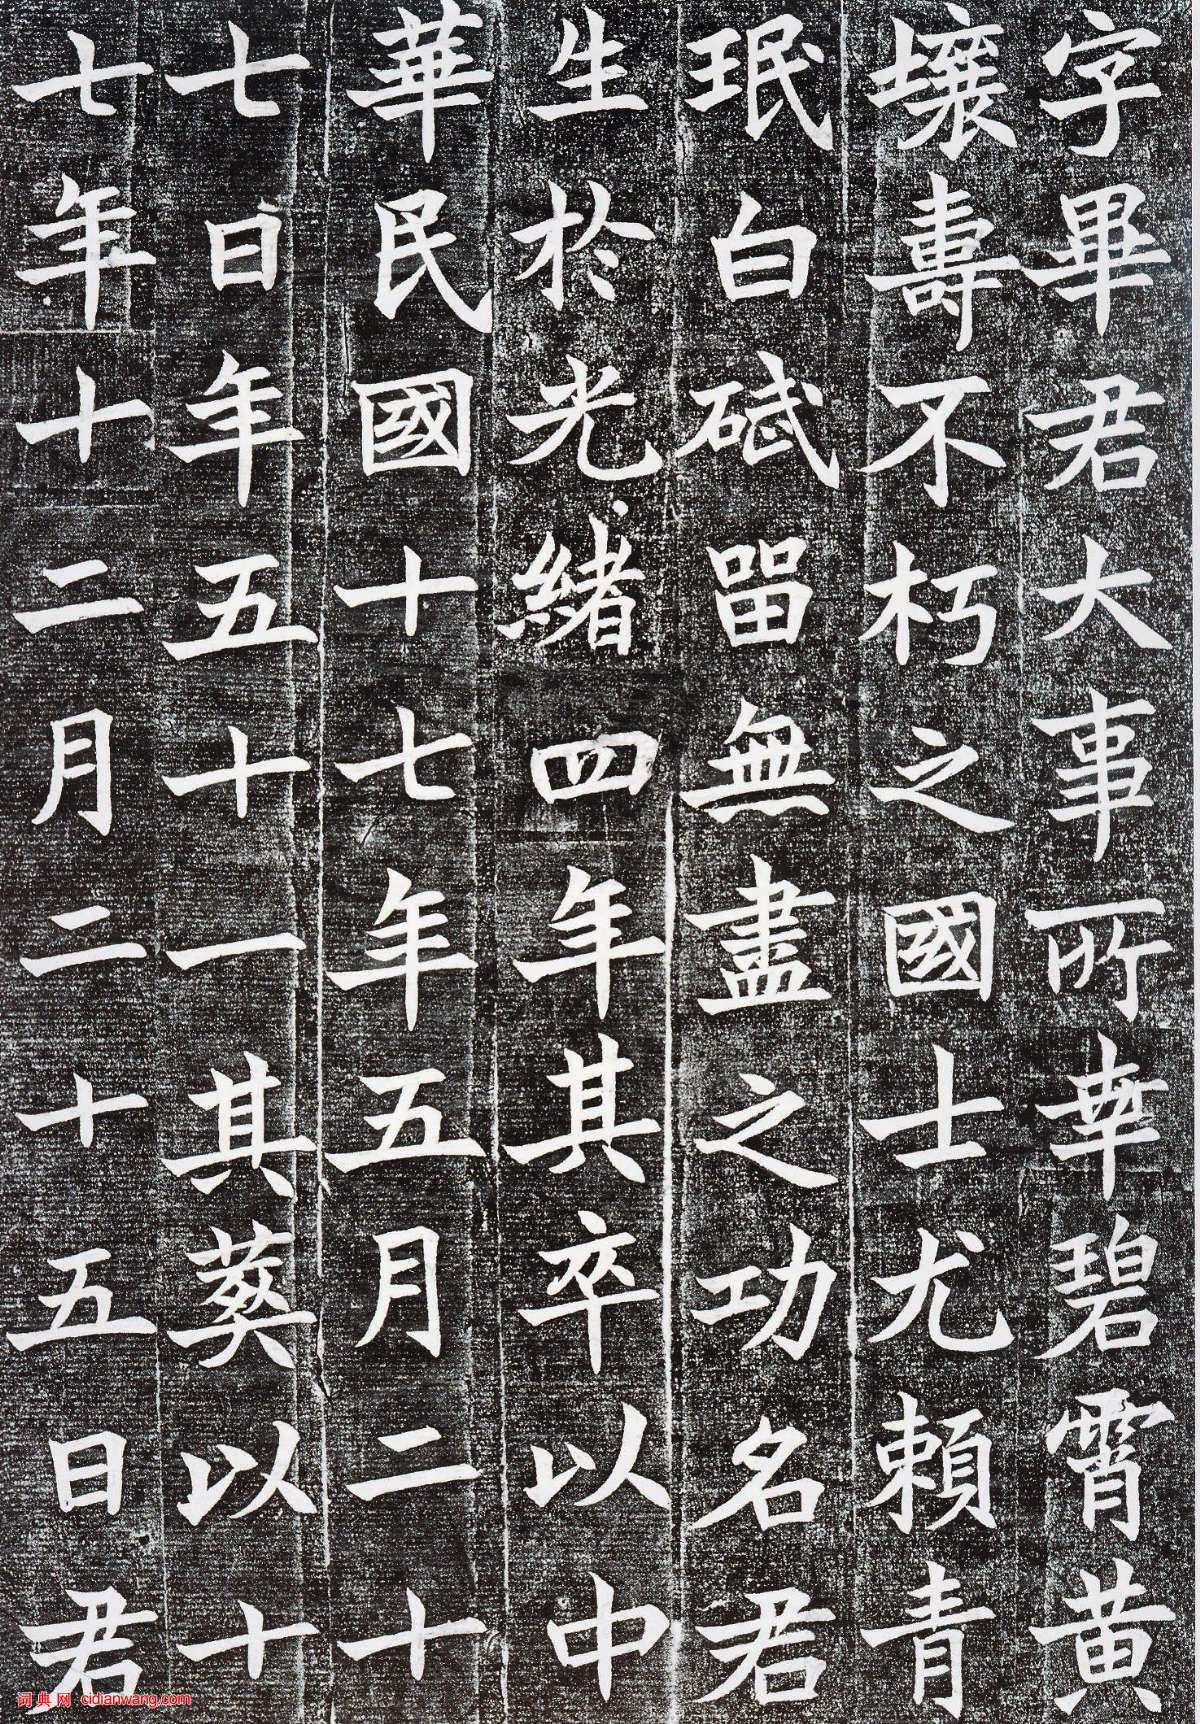 字畢君大事所幸碧霄黄
壤壽不朽之國士尤賴青
珉白砥畱無盡之功名君
生於光緒四年其卒以中
華民國十七年五月二十
七日年五十一其葬以十
七年十二月二十五日君
词典网 cidianwang.com